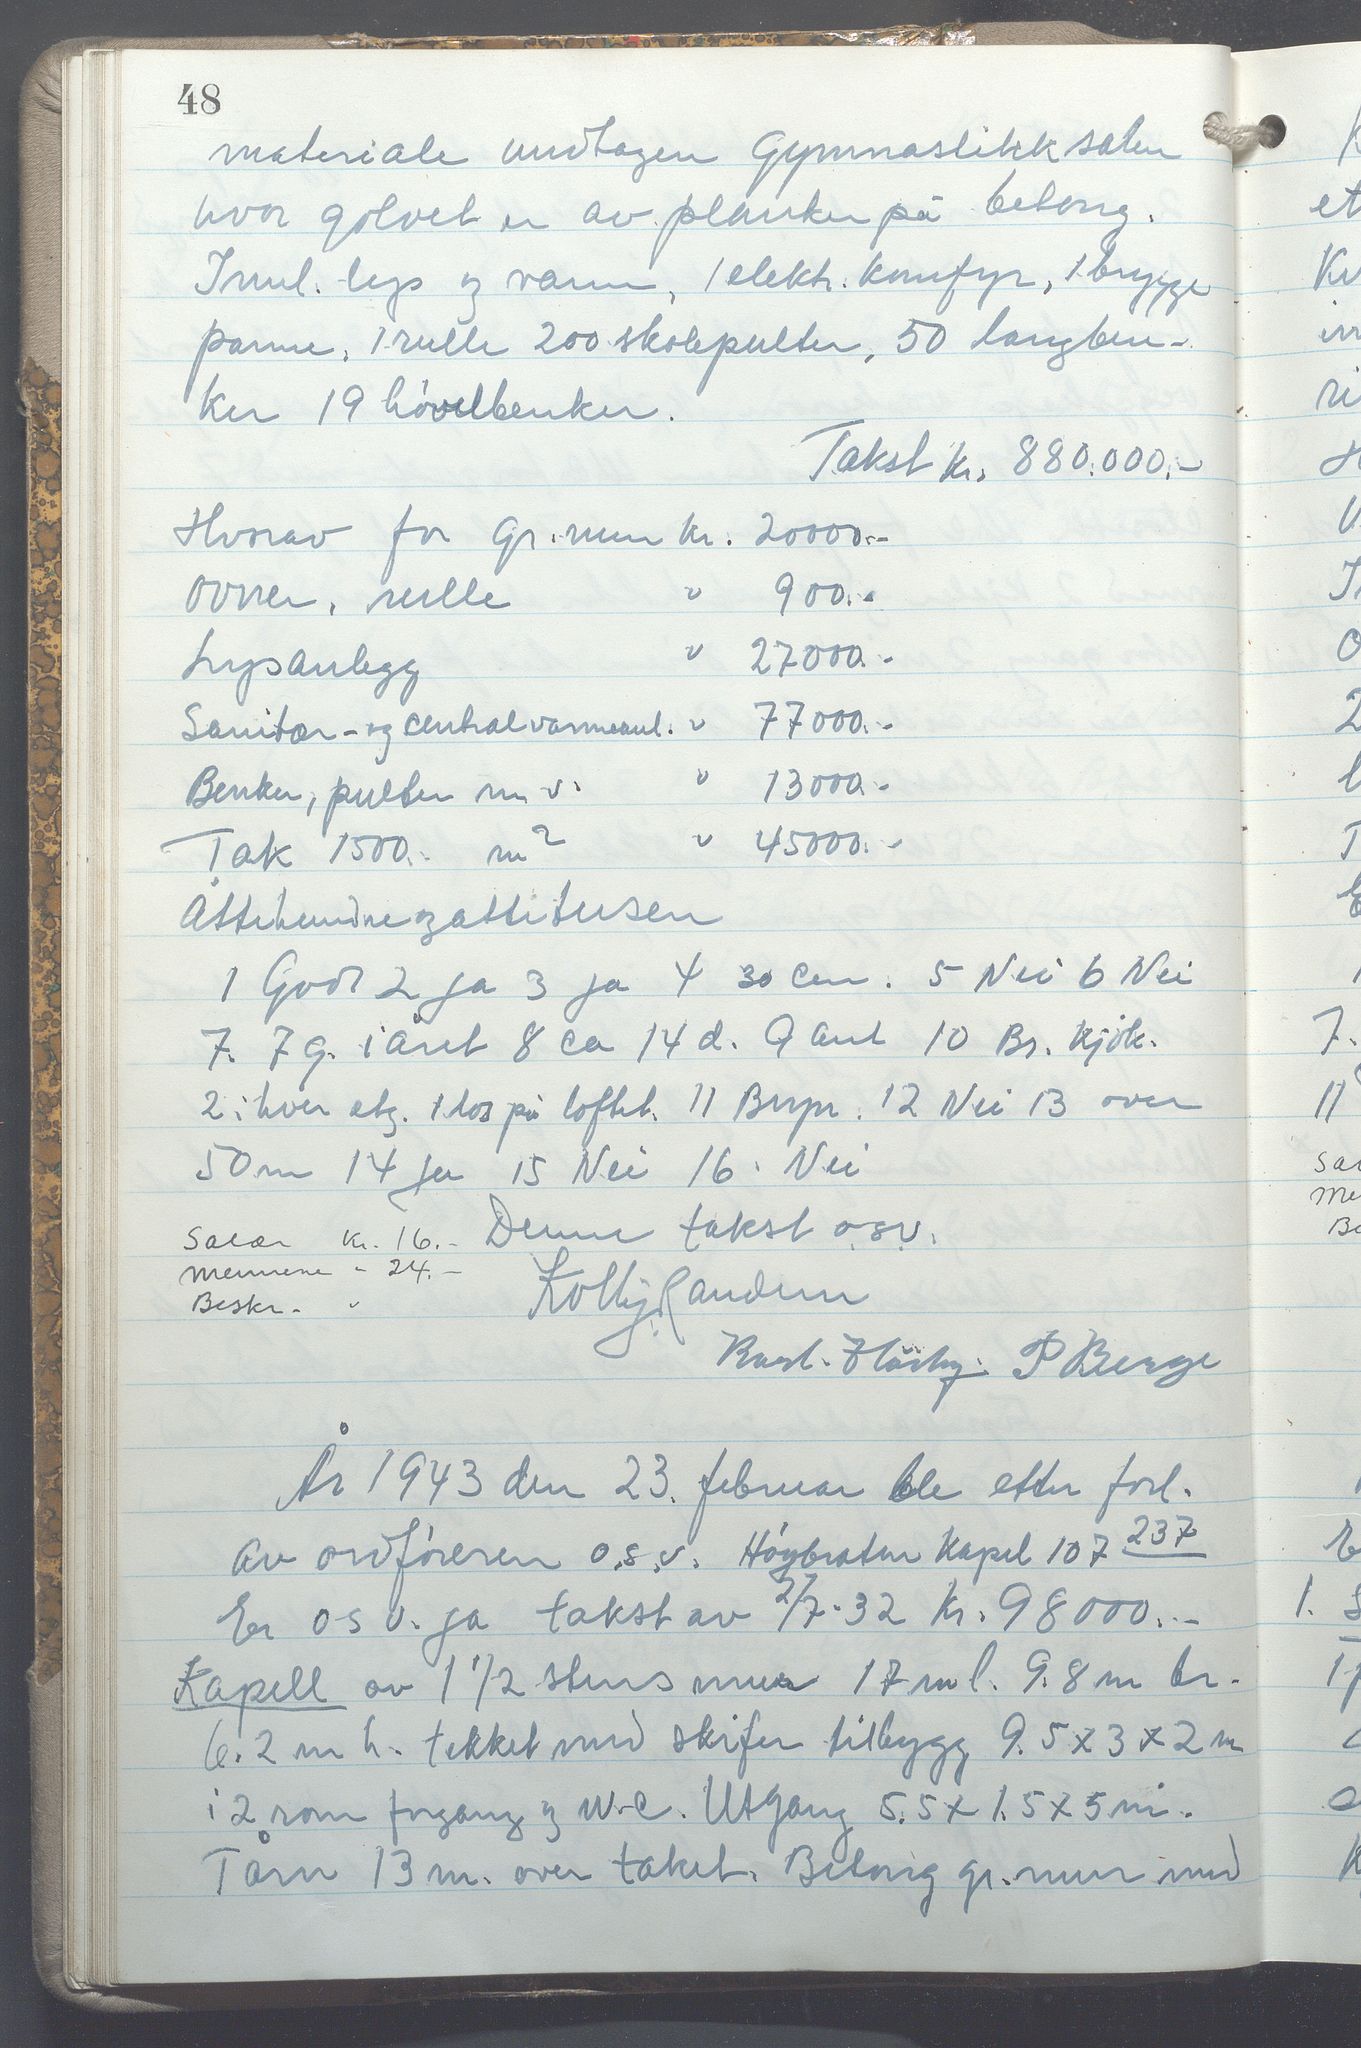 48
materiale undtagen Gymnastikksalen
hvor golvet er av planker på betong.
Innl. lys og varm, 1 elektr. komfyr, 1 brygge
panne, 1 rulle 200 skolepulter, 50 langben-
ker 19 hövelbenker.
Takst kr. 880.000.-
Hvorav for gr.mur kr. 20000.-
Ovner, rulle " 900.-
Lysanlegg " 27000.-
Sanitær- og centralvarmeanl. " 77000.-
Benker, pulter m.v. " 13000.-
Tak 1500.- m2 " 45000.-
Åttehundreogåttitusen
1 Godt 2 ja 3 ja 4 30 cm. 5 Nei 6 Nei
7. 7 g. i året 8 ca 14 d. 9 ant 10 Br. kjök.
2 i hver etg. 1 los på loftet. 11 Bryn. 12 Nei 13 over
50 m 14 ja 15 Nei 16. Nei
Salær kr. 16.- Denne takst o.s.v.
Mennene " 24.-
Beskr. "
P Berge
År 1943 den 23. februar ble etter forl.
av ordföreren o.s.v. Höybråten Kapel 107 237
Er o s v. ja takst av 27/7-32 kr. 98000.-
Kapell av 1 1/2 stens mur 17 m l. 9.8 m br.
6.2 m h. tekket med skifer tilbygg 9.5 x 3 x 2 m
i 2 rom forgang og W.C. Utgang 5.5 x 1.5 x 5 m.
Tårn 13 m. over taket. Betong gr.mur med